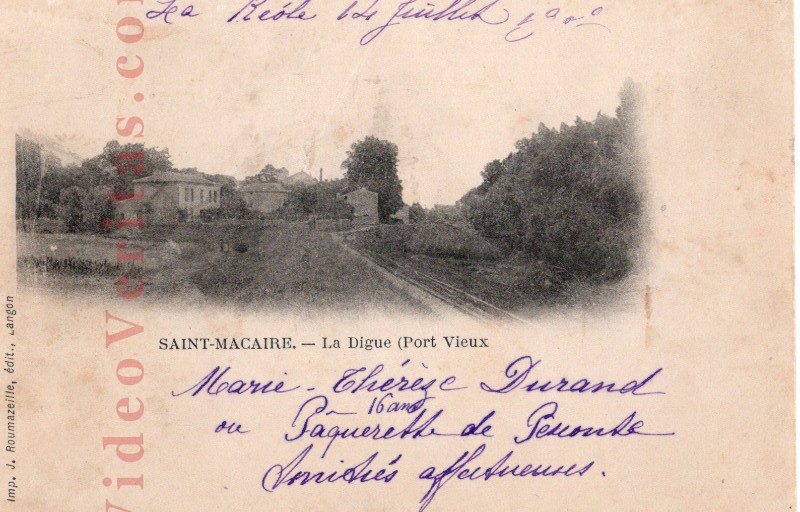 La Réole 14 Juillet 1900
SAINT-MACAIRE. — La Digue (Port Vieux
Marie-Thérèse Durand
16 ans
ou Pâquerette de
Amitiés affectueuses.
Imp. J. Roumazeille, édit., Langon
VideoVeritas.com